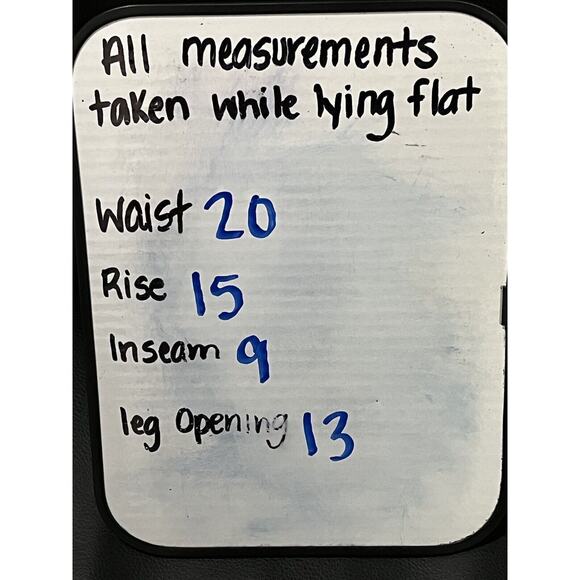 All measurements
taken while lying flat
Waist 20
Rise 15
Inseam 9
leg Opening 13